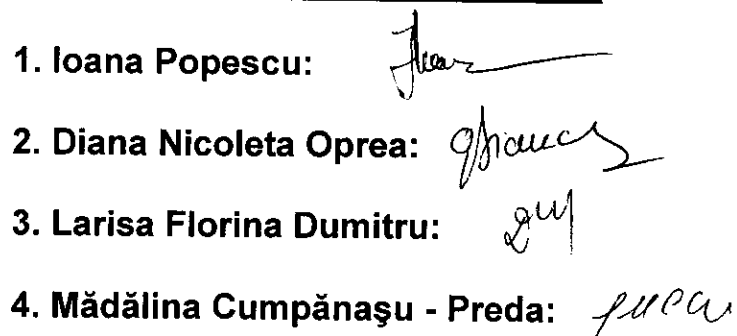 1. Ioana Popescu:
2. Diana Nicoleta Oprea:
3. Larisa Florina Dumitru:
4. Mădălina Cumpănaşu - Preda: